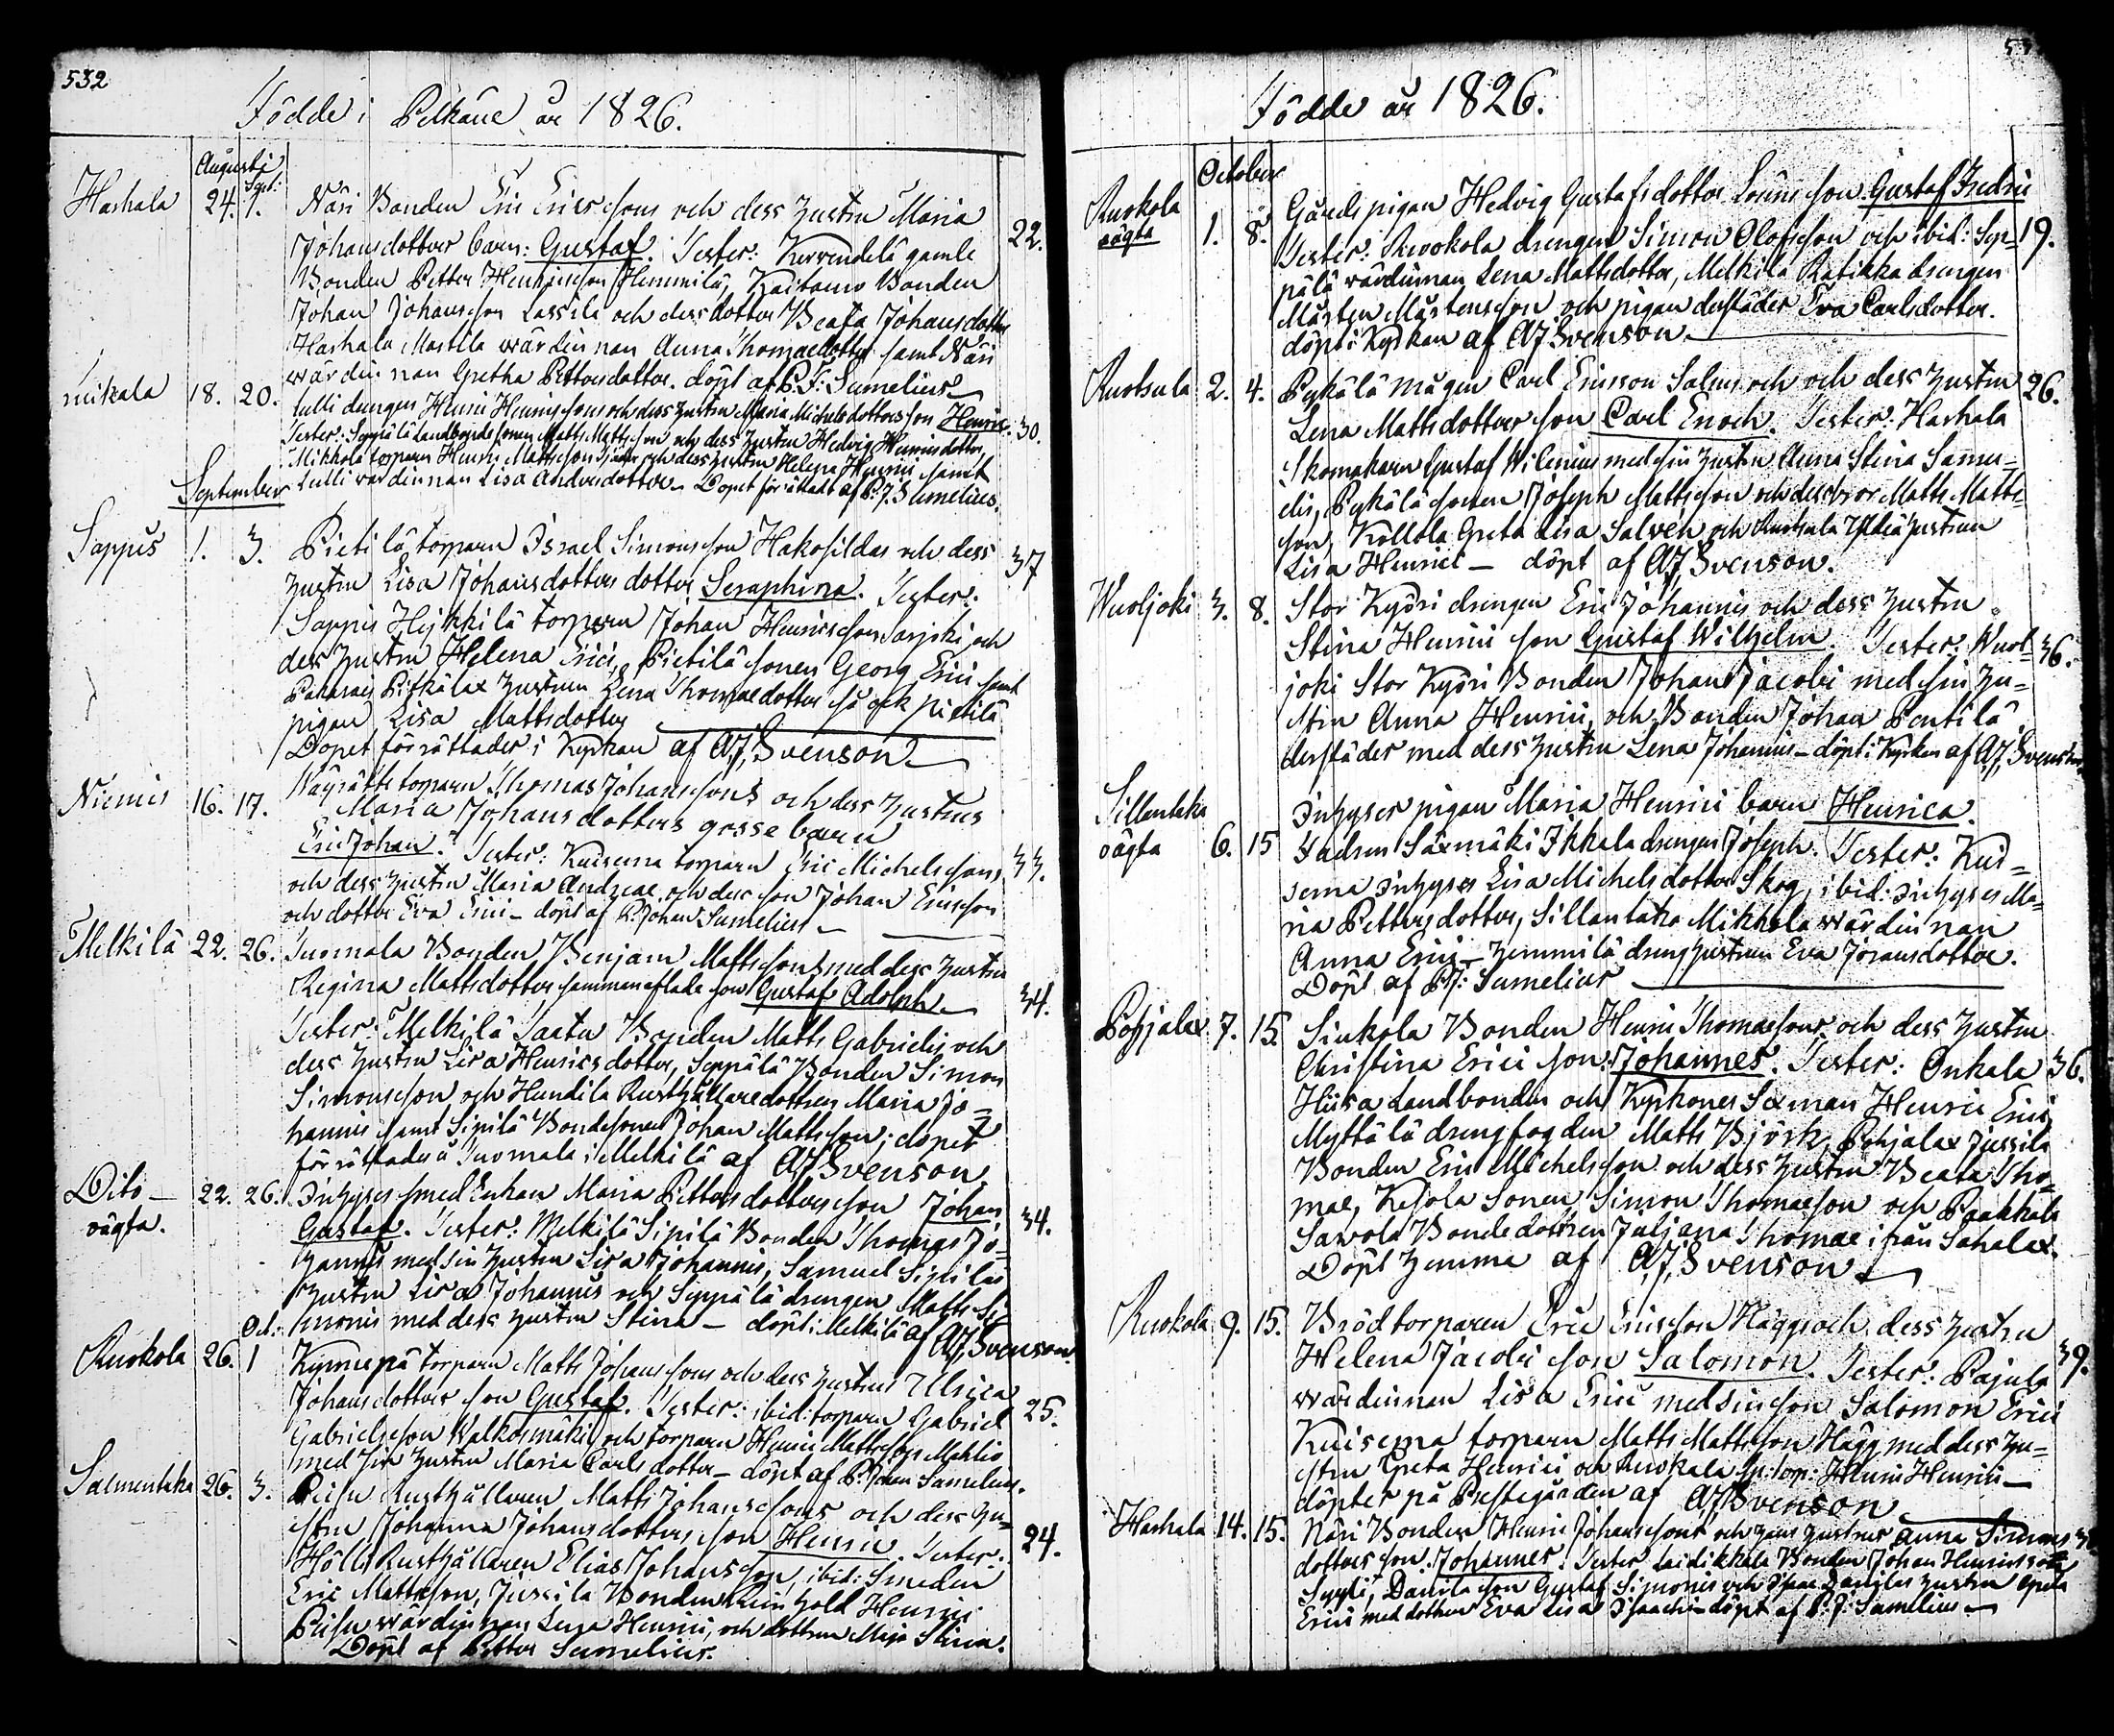 532
Födde i Pelkäne år 1826.
Augusti
Sept:
Harhala 24. 1. Näri Bonden Eric Ericssons och dess hustru Maria
Johansdotters barn: Gustaf. Tester: Kirvendelä gamle 22.
Bonden Petter Henricsson Hemmilä, Kaitamo Bonden
Johan Johansson Lassila och dess dotter Beata Johansdotter
Harhala Mattila wärdinnan Anna Thomædotter samt Näri
wärdinnan Gretha Pettersdotter. döpt af P. J: Sumelius
18. 20. Lulli drengen Henric Henricssons och dess hustru Maria Michelsdotters son Henric. 30.
Tester: Seppälä Landbondesonen Matts Mattsson och dess hustru Hedvig Henricsdotter,
Mikkola torparn Henric Mattsson och dess hustru Helena Henrici samt
Lulli wärdinnan Lisa Andersdotter. Dopet förrättadt af P. J. Sumelius.
September
Sappis 1. 3. Pietilä torparn Israel Simonsson Hakosildas och dess 37
hustru Lisa Johansdotters dotter Seraphina. Tester:
Sappis Heikkilä torparn Johan Henricsson Sarjoki, och
dess hustru Helena Erici, Pietilä sonen Georg Erici samt
Pitkälax hustrun Lena Thomædotter så ock Pietilä
pigan Lisa Mattsdotter
Dopet förrättades i Kyrkan af A.J. Svenson
Niemis 16. 17. torparn Thomas Johanssons och dess hustrus
Maria Johansdotters gosse barn
Eric Johan. Tester: Kuisema torparn Eric Michelsson, 33.
och dess hustru Maria Andreae och dess son Johan Ericsson
och dotter Eva Erici – döpt af P. Johan Sumelius
Melkilä 22. 26. Tuomala Bonden Benjam Mattssons med dess hustru
Regina Mattsdotter sammanaflade son Gustaf Adolph. 34.
Tester: Melkilä Saatu Bonden Matts Gabrielis och
dess hustru Lisa Henricsdotter, Seppälä Bonden Simon
Simonsson och Hundila Rusthållaredottren Maria Jo=
hannis samt Sipilä Bondesonen Johan Mattsson; dopet
förrättades å Tuomala i Melkilä af A.J. Svenson
Dito – 22. 26. Inhyses smed Enkan Maria Pettersdotters son Johan
oägta. Gustaf. Tester: Melkilä Sipilä Bonden Thomas Jo= 34.
hannis med sin hustru Lisa Johannis, Samuel Sipiläs
hustru Lisa Johannis och Seppälä drengen Matts Si=
monis med dess hustru Stina – döpt i Melkilä af A.J. Svenson.
Oct:
Ruokola 26. 1 torparn Matts Johanssons och dess hustrus Ulrica
Johansdotters son Gustaf. Tester: ibid: torparn Gabriel 25.
Gabrielsson Walkosmäki och torparn Henric Mattsson Mahlio
med sin hustru Maria Carlsdotter – döpt af P. Johan Sumelius.
Salmentaka 26. 3. Peisu Rusthållaren Matts Johanssons och dess hu=
stru Johanna Johansdotters son Henric. Tester: 24.
Hölli Rusthållaren Elias Johansson, ibid: Smeden
Eric Mattsson, Jussila Bonden Reinhold Henrici
Peisu wärdinnan Lena Henrici, och dottren Maja Stina.
Döpt af Petter Sumelius.
Födde år 1826.
October
Ruokola 1. 8. Gårds pigan Hedvig Gustafsdotter Lönns son Gustaf Fredric
oägta Tester: Ruokola drengen Simon Olofsson och ibid: Sep= 19.
pälä wärdinnan Lena Mattsdotter, Melkilä Ratikka drengen
Mårten Mårtensson och pigan derstädes Eva Carlsdotter.
döpt i Kyrkan af A.J. Svenson.
Ruotsula 2. 4. Pykälä mågen Carl Ericsson Salens och och dess hustru 26.
Lena Mattsdotters son Carl Enoch. Tester: Harhala
Skomakarn Gustaf Wilenius med sin hustru Anna Stina Samu=
elis, Pykälä sonen Joseph Mattsson och dess bror Matts Matts=
son, Köllola Greta Lisa Salvén och Ruotsula hustrun
Lisa Henrici – döpt af A.J. Svenson.
Wuoljoki 3. 8. Stor Kyöri drengen Eric Johannis och dess hustru
Stina Henrici son Gustaf Wilhelm. Tester: Wuol= 36.
joki Stor Kyöri Bonden Johan Jacobi med sin hu=
stru Anna Henrici, och Bonden Johan Pentilä
derstädes med dess hustru Lena Johannis – döpt i Kyrkan af A.J. Svenson
Sillantaka Inhyses pigan Maria Henrici barn Henrica.
oägta 6. 15 Fadren Säxmäki Ikkala drengen Joseph. Tester: Kui=
sema Inhyses Lisa Michelsdotter Skog, ibid: Inhyses Ma=
ria Pettersdotter, Sillantaka Mikkola wärdinnan
Anna Erici – Hemmilä dreng hustrun Eva Johansdotter.
Döpt af P.J: Sumelius
Pohjalax 7. 15. Sinkola Bonden Henric Thomæsons och dess hustru
Christina Erici son: Johannes. Tester: Onkala 36.
Hiisa Landbonden och Kyrkones Sexman Henric Erici
Myttälä drengfogden Matts Björk, Pohjalax Jussila
Bonden Eric Michelsson och dess hustru Beata Tho=
mae, Kejola Sonen Simon Thomæson och Paakkala
Sawola Bondedottren Juljana Thomæ ifrån Sahalax.
Döpt hemma af A.J. Svenson
Ruokola 9. 15. Bröd torparen Eric Ericsson Häggs och dess hustru
Helena Jacobi son Salomon. Tester: Pajula 39.
wärdinnan Lisa Erici med sin son Salomon Erici
Kuisema torparn Matts Mattsson Hägg med dess hu=
stru Greta Henrici och Ruokala sp: torp: Henric Henrici –
döptes på Prestegården af A.J. Svenson
Harhala 14. 15. Näri Bonden Henric Johanssons och hans hustrus Anna Simons
dotters son: Johannes. Tester: Laidikkala Bonden Johan Henricsson
Syyli, Danila son Gustaf Simonis och Isaac Danilas hustru Greta
Erici med dottren Eva Lisa Isaaci – döpt af P: J. Sumelius